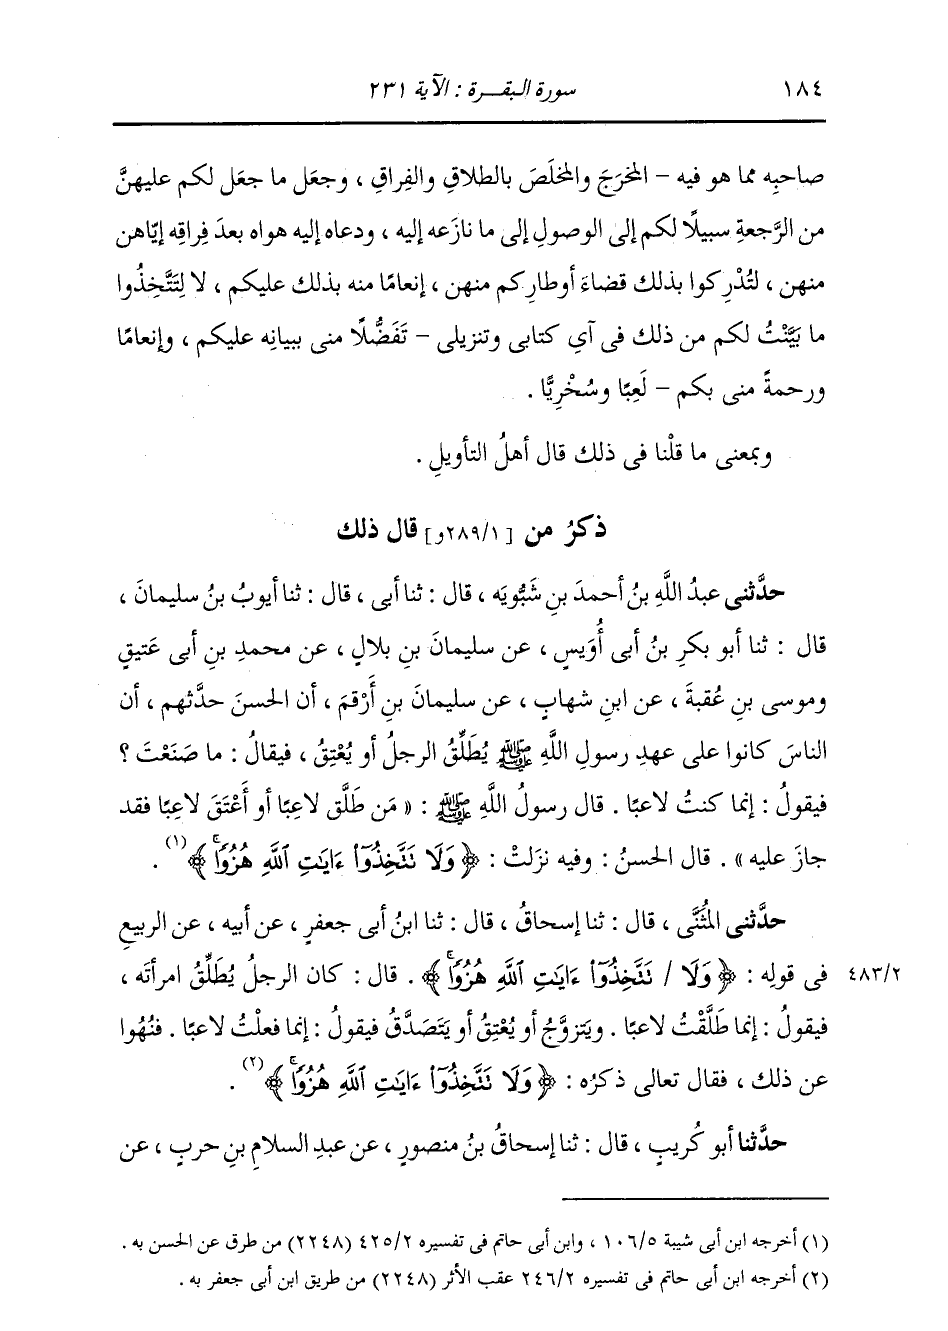 ١٨٤ سورة البقرة : الآية ٢٣١
صاحبِه مما هو فيه - المَخرَجَ والمَخلَصَ بالطلاقِ والفِراقِ ، وجعَل ما جعَل لكم عليهنَّ
من الرَّجعةِ سبيلًا لكم إلى الوصولِ إلى ما نازَعه إليه ، ودعاه إليه هواه بعدَ فِراقِه إيّاهن
منهن ، لتُدْرِكوا بذلك قضاءَ أوطارِكم منهن ، إنعامًا منه بذلك عليكم ، لا لِتَتَّخِذُوا
ما بَيَّنْتُ لكم من ذلك فى آىِ كتابى وتنزيلى - تَفَضُّلًا منى ببيانِه عليكم ، وإنعامًا
ورحمةً منى بكم - لَعِبًا وسُخْرِيًّا .
وبمعنى ما قلْنا فى ذلك قال أهلُ التأويلِ .
ذكرُ من [٢٨٩/١و] قال ذلك
حدَّثنى عبدُ اللَّهِ بنُ أحمدَ بنِ شَبُّويَه ، قال : ثنا أبى ، قال : ثنا أيوبُ بنُ سليمانَ ،
قال : ثنا أبو بكرِ بنُ أبى أُوَيسٍ ، عن سليمانَ بنِ بلالٍ ، عن محمدِ بنِ أبى عَتيقٍ
وموسى بنِ عُقبةَ ، عن ابنِ شهابٍ ، عن سليمانَ بنِ أَرْقمَ ، أن الحسنَ حدَّثهم ، أن
الناسَ كانوا على عهدِ رسولِ اللَّهِ ﷺ يُطَلِّقُ الرجلُ أو يُعْتِقُ ، فيقالُ : ما صَنَعْتَ ؟
فيقولُ : إنما كنتُ لاعبًا . قال رسولُ اللَّهِ ﷺ : « مَن طَلَّق لاعِبًا أو أَعْتَقَ لاعِبًا فقد
جازَ عليه » . قال الحسنُ : وفيه نزَلتْ : ﴿ وَلَا نَتَّخِذُوٓاْ ءَايَٰتِ ٱللَّهِ هُزُوًاۚ ﴾ (١) .
حدَّثنى المُثَنَّى ، قال : ثنا إسحاقُ ، قال : ثنا ابنُ أبى جعفرٍ ، عن أبيه ، عن الربيعِ
فى قولِه : ﴿ وَلَا / نَتَّخِذُوٓاْ ءَايَٰتِ ٱللَّهِ هُزُوًاۚ ﴾ . قال : كان الرجلُ يُطَلِّقُ امرأتَه ، ٤٨٣/٢
فيقولُ : إنما طَلَّقْتُ لاعبًا . ويتزوَّجُ أو يُعْتِقُ أو يَتَصَدَّقُ فيقولُ : إنما فعلْتُ لاعبًا . فنُهُوا
عن ذلك ، فقال تعالى ذكرُه : ﴿ وَلَا نَتَّخِذُوٓاْ ءَايَٰتِ ٱللَّهِ هُزُوًاۚ ﴾ (٢) .
حدَّثنا أبو كُريبٍ ، قال : ثنا إسحاقُ بنُ منصورٍ ، عن عبدِ السلامِ بنِ حربٍ ، عن
(١) أخرجه ابن أبى شيبة ١٠٦/٥ ، وابن أبى حاتم فى تفسيره ٤٢٥/٢ (٢٢٤٨) من طرق عن الحسن به .
(٢) أخرجه ابن أبى حاتم فى تفسيره ٢٤٦/٢ عقب الأثر (٢٢٤٨) من طريق ابن أبى جعفر به .